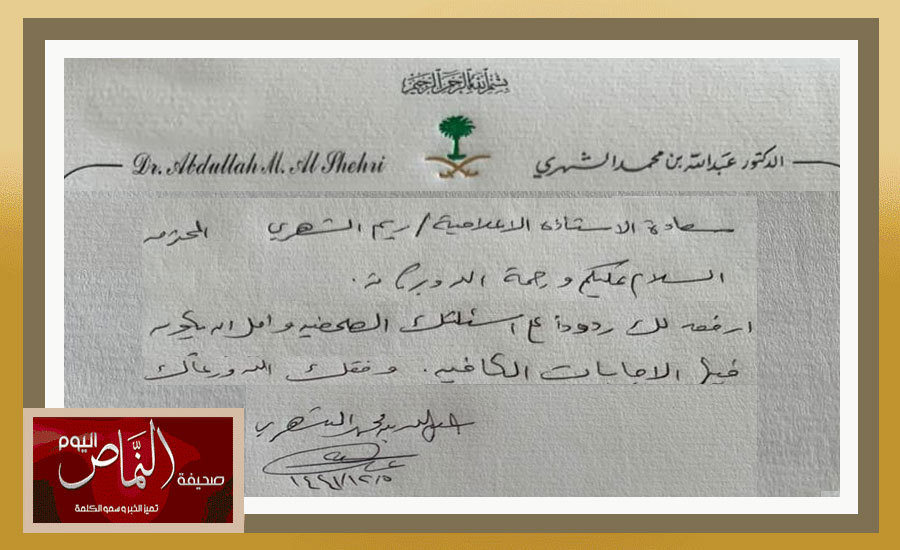 بسم الله الرحمن الرحيم
الدكتور عبدالله بن محمد الشهري
Dr. Abdullah M. Al Shehri
سعادة الاستاذة الاعلامية / ريم الشهري المحترمه
السلام عليكم ورحمة الله وبركاته.
ارفعه لك ردوداً ع اسئلتك الصحفيه وامل ان يكون
فيها الاجابات الكافيه. وفقك الله ورعاك
عبدالله بن محمد الشهري
صحيفة
النماص
اليوم
تميز الخبر و سمو الكلمة